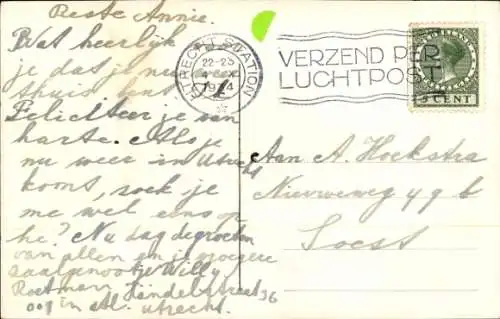 Beste Annie.
Wat heerlijk
je dat je nu
thuis bent
Feliciteer je van
harte. Als je
nu weer in Utrecht
komt, zoek je
me wel eens op
he? Nu dag de groeten
van allen en je vroegere
zaalgenootje Willy
Roetman Händelstraat 36
in Utrecht.
UTRECHT STATION
22-23
VERZEND PER
LUCHTPOST
NEDERLAND
5 CENT
Aan A. Hoekstra
Nieuweweg
Soest